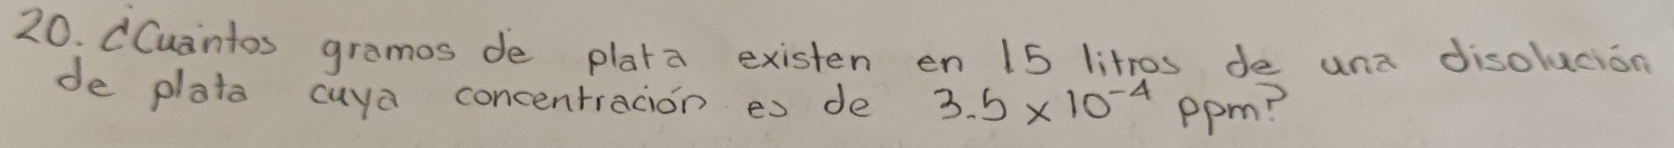 20. ¿Cuántos gramos de plata existen en 15 litros de una disolución
de plata cuya concentración es de 3.5 x 10⁻⁴ ppm?